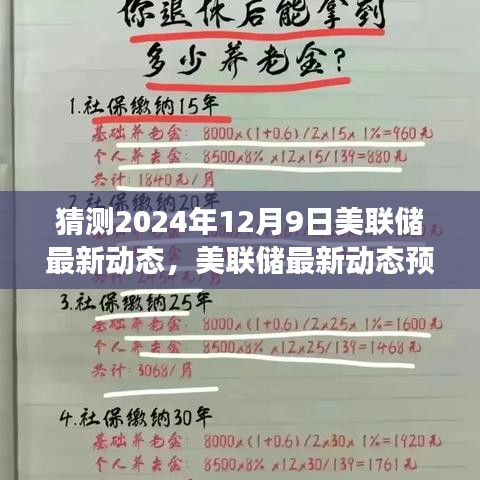 你退休后能拿到
多少养老金?
1.社保缴纳15年
基础养老金: 8000×(1+0.6)/2×15×1%=960元
个人养老金: 8500×8%×12×15/139=880元
共计: 1840元/月
猜测2024年12月9日美联储
最新动态，美联储最新动态预
3.社保缴纳25年
8000×(1+0.6)/2×25×1%=1600元
8500×8%×12×25/139=1468元
共计: 3068/月
4.社保缴纳30年
基础养老金: 8000×(1+0.6)/2×30×1%=1920元
个人养老金: 8500×8%×12×30/139=1761元